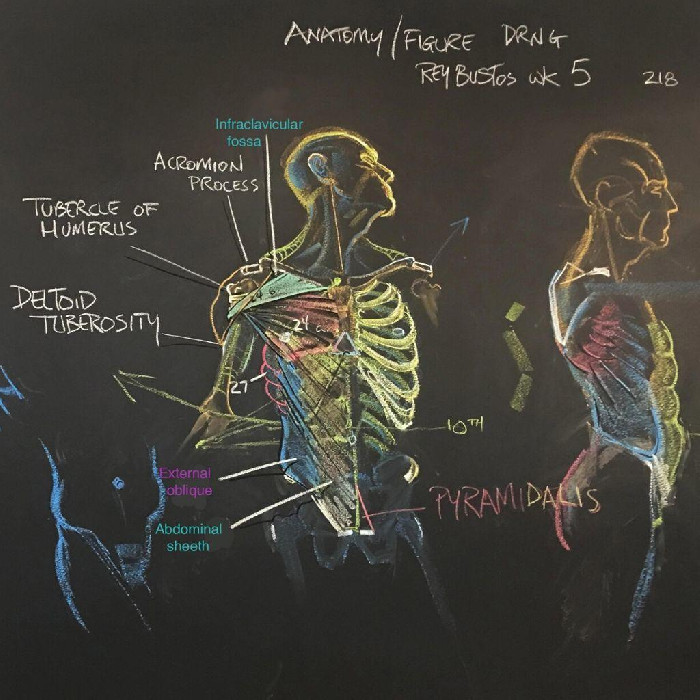 ANATOMY/FIGURE DRNG
REY BUSTOS WK 5
218
Infraclavicular
fossa
ACROMION
PROCESS
TUBERCLE OF
HUMERUS
DELTOID
TUBEROSITY
24
27
10TH
External
oblique
PYRAMIDALIS
Abdominal
sheeth